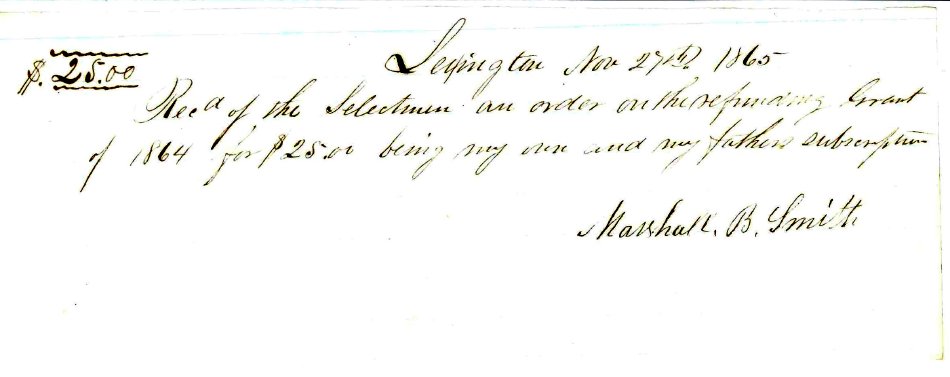 $. 25.00
Lexington Nov 27th 1865
Recd of the Selectmen an order on the refunding Grant
of 1864 for $25.00 being my own and my fathers subscription
Marshall. B. Smith